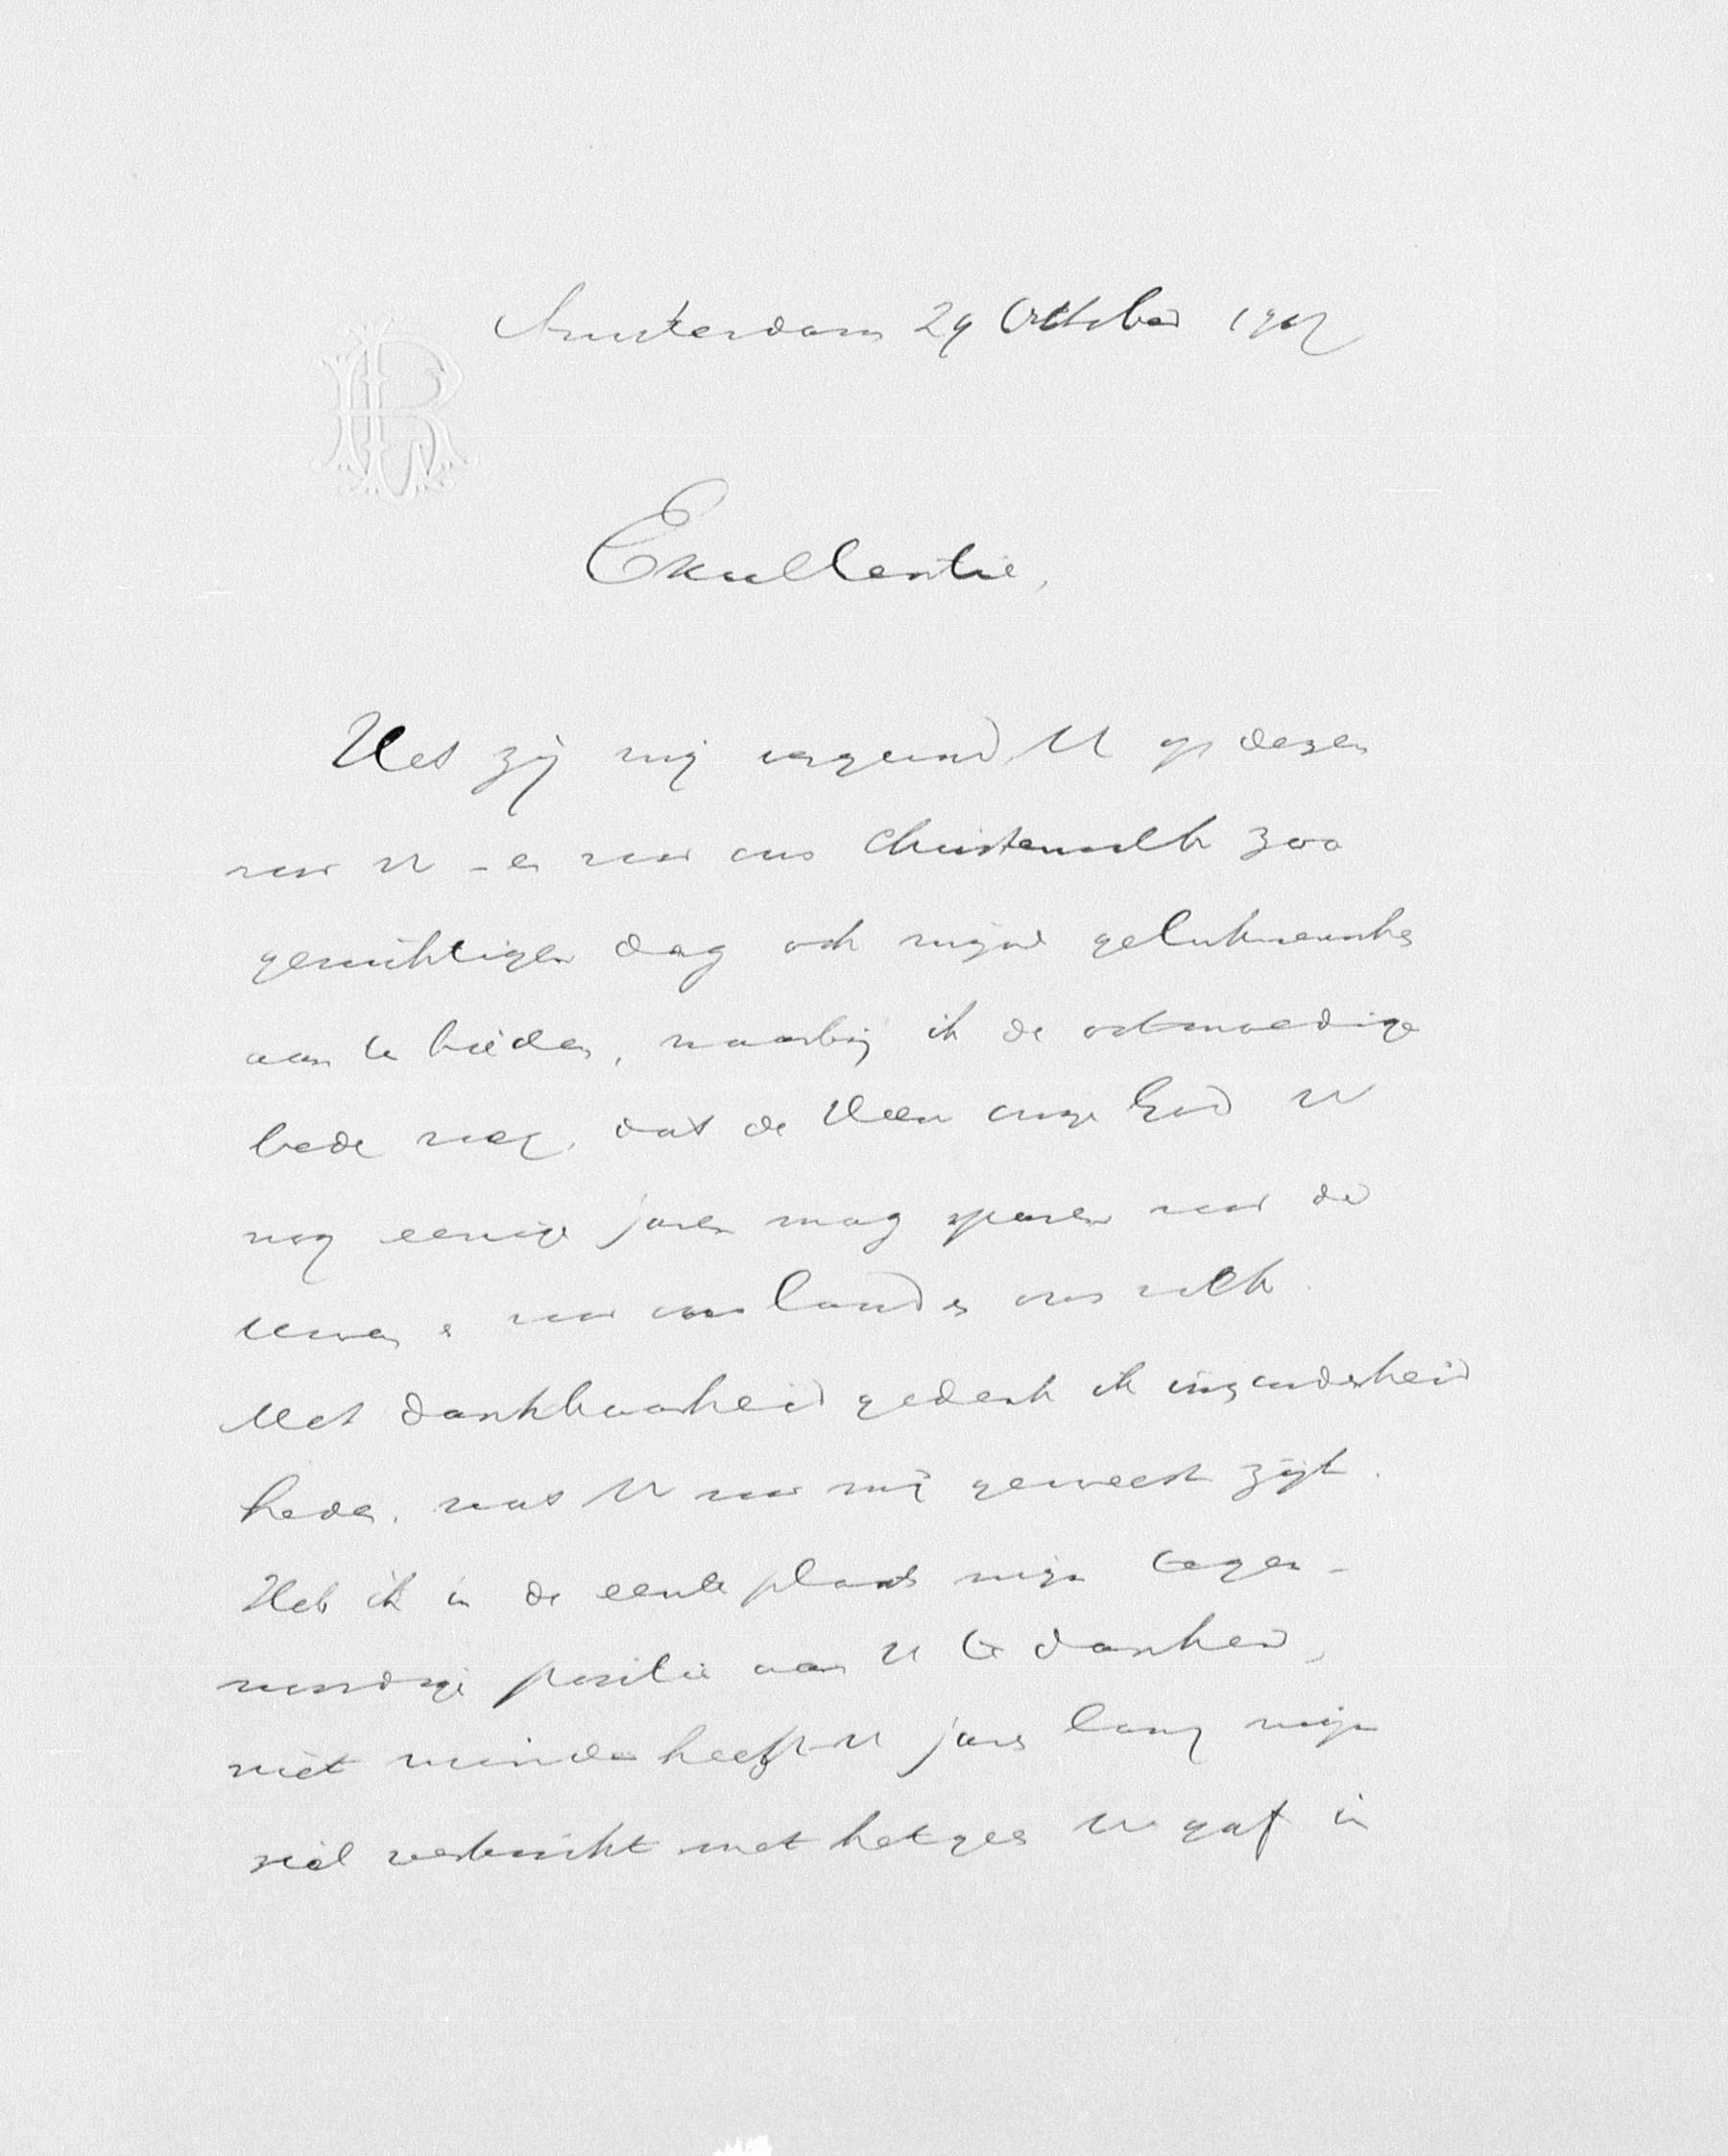 Amsterdam 29 October 1907
Excellentie,
Het zij mij vergund, U op dezen
voor U - en voor ons Christenvolk zoo
gewichtigen dag ook mijne gelukwenschen
aan te bieden, waarbij ik de ootmoedige
bede voeg, dat de Heere onze God U
nog eenige jaren mag sparen voor de
Uwen en voor ons land en ons volk.
Met dankbaarheid gedenk ik inzonderheid
heden, wat U voor mij geweest zijt.
Heb ik in de eerste plaats mijn tegen-
woordige positie aan U te danken,
niet minder heeft U jaren lang mijn
ziel verkwikt met hetgeen U gaf in